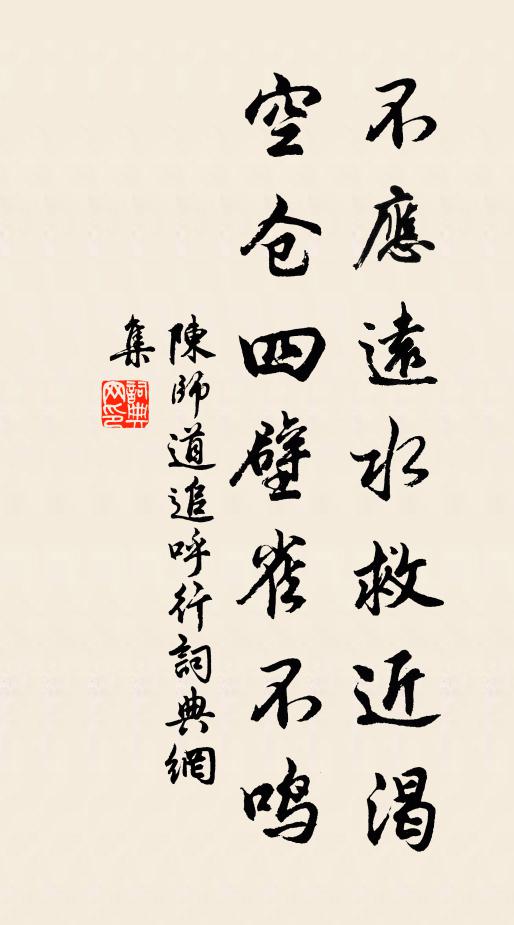 不應遠水救近渴
空仓四壁雀不鸣
陳師道追呼行詞典網
集
詞典網印